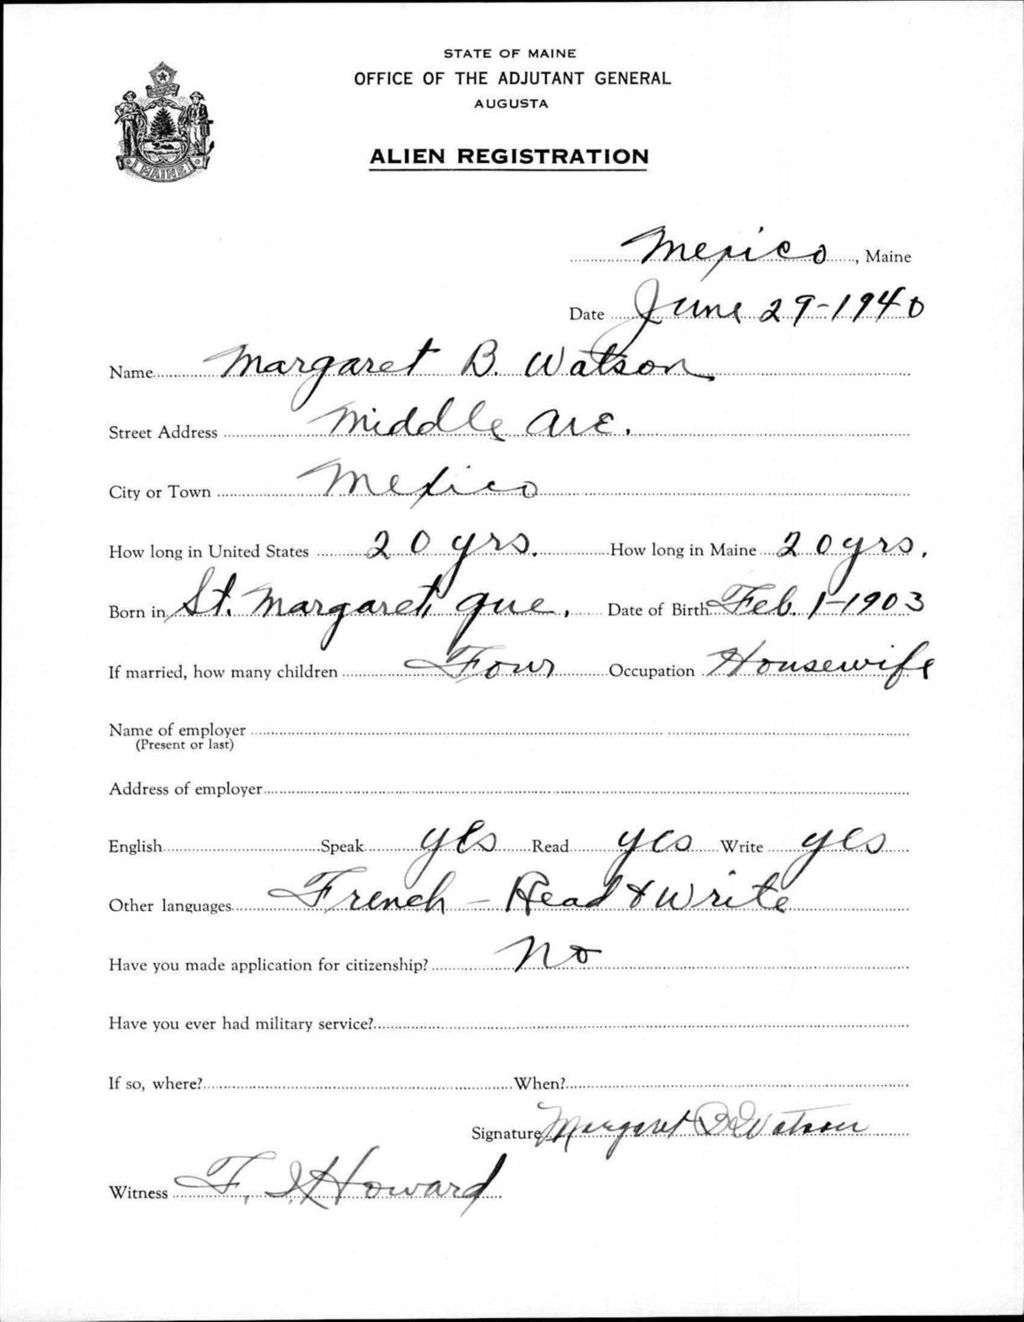 STATE OF MAINE
OFFICE OF THE ADJUTANT GENERAL
AUGUSTA
ALIEN REGISTRATION
MAINE
Mexico, Maine
Date June 29-1940
Name Margaret B. Watson
Street Address Middle Ave.
City or Town Mexico
How long in United States 20 yrs. How long in Maine 20 yrs.
Born in St. Margaret, Que. Date of Birth Feb. 1-1903
If married, how many children Four Occupation Housewife
Name of employer
(Present or last)
Address of employer
English Speak yes Read yes Write yes
Other languages French - Read & Write
Have you made application for citizenship? No
Have you ever had military service?
If so, where? When?
Signature Margaret B Watson
Witness F. J. Howard